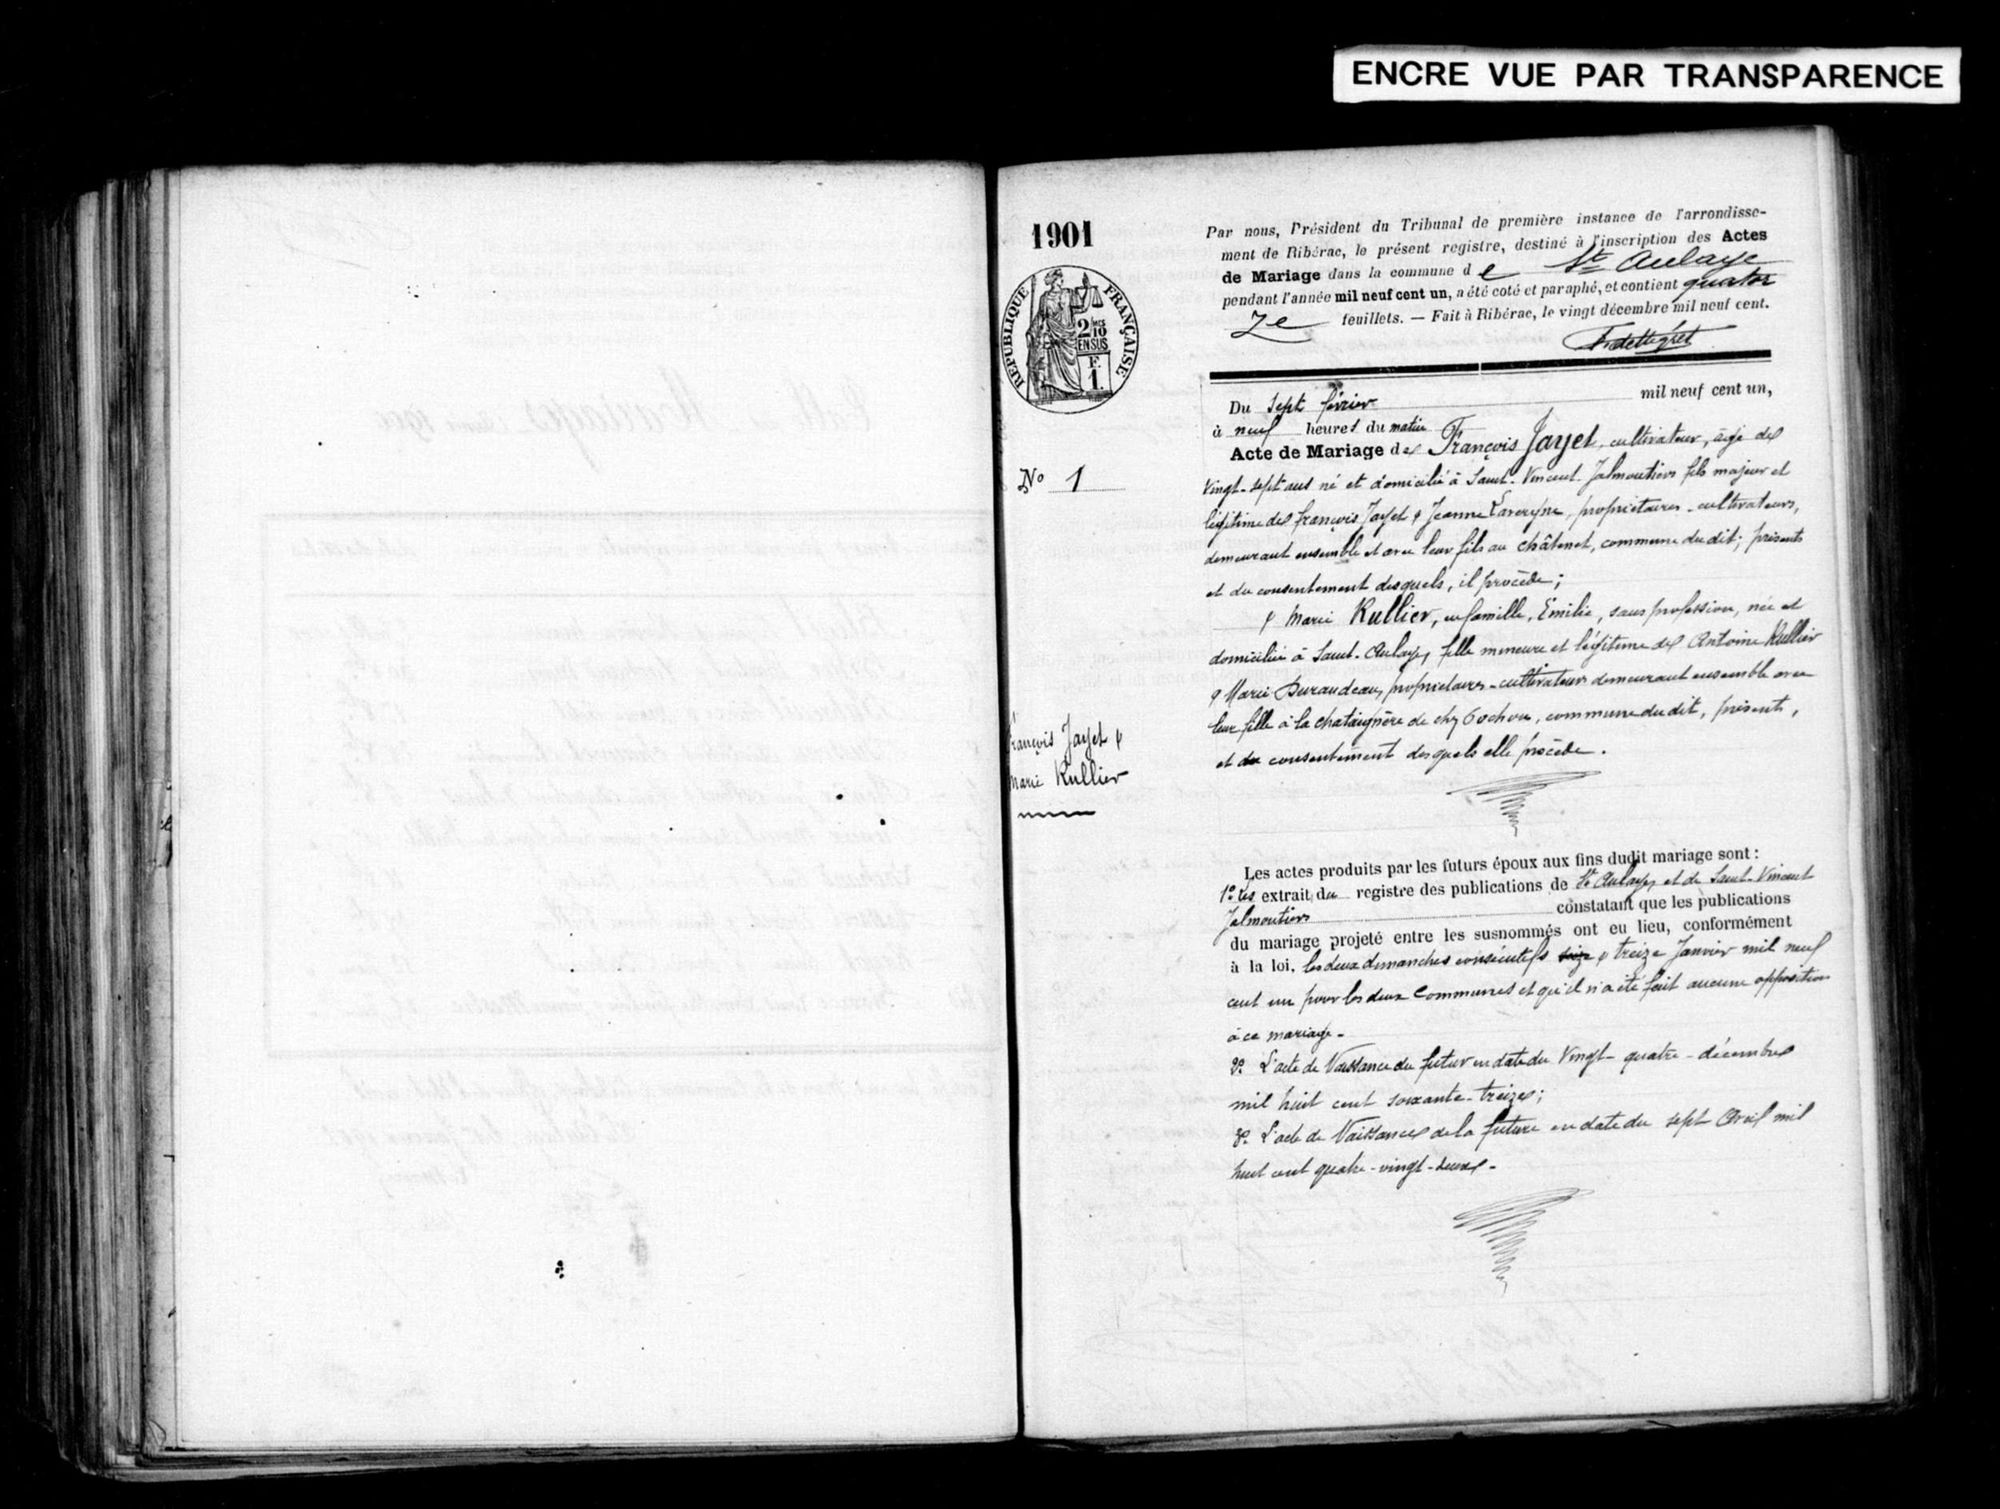 ENCRE VUE PAR TRANSPARENCE
1901
RÉPUBLIQUE FRANÇAISE
2/10
EN SUS
F.
1.
Par nous, Président du Tribunal de première instance de l'arrondisse-
ment de Ribérac, le présent registre, destiné à l'inscription des Actes
de Mariage dans la commune de St Aulaye
pendant l'année mil neuf cent un, a été coté et paraphé, et contient quator
ze feuillets. — Fait à Ribérac, le vingt décembre mil neuf cent.
Du sept février mil neuf cent un,
à neuf heures du matin
Acte de Mariage de François Jayet, cultivateur, âgé de
vingt-sept ans né et domicilié à Saint-Vincent-Jalmoutiers fils majeur et
légitime de françois Jayet & Jeanne Lavergne, propriétaires-cultivateurs,
demeurant ensemble et avec leur fils au châtenet, commune du dit; présents
et du consentement desquels, il procède;
& Marie Rullier, en famille, Emilie, sans profession, née et
domiciliée à Saint-Aulaye, fille mineure et légitime de Antoine Rullier
& Marie Durandeau, propriétaires-cultivateurs demeurant ensemble avec
leur fille à la chataignère de chez, commune du dit, présents,
et du consentement desquels elle procède.
No 1
François Jayet &
Marie Rullier
Les actes produits par les futurs époux aux fins dudit mariage sont :
1° les extrait du registre des publications de St Aulaye, et de Saint-Vincent
Jalmoutiers constatant que les publications
du mariage projeté entre les susnommés ont eu lieu, conformément
à la loi, les deux dimanches consécutifs & treize Janvier mil neuf
cent un pour les deux Communes et qu'il n'a été fait aucune opposition
à ce mariage -
2°. L'acte de Naissance du futur en date du Vingt-quatre-décembre
mil huit cent soixante-treize;
3°. L'acte de Naissance de la future en date du sept Avril mil
huit cent quatre-vingt-deux -